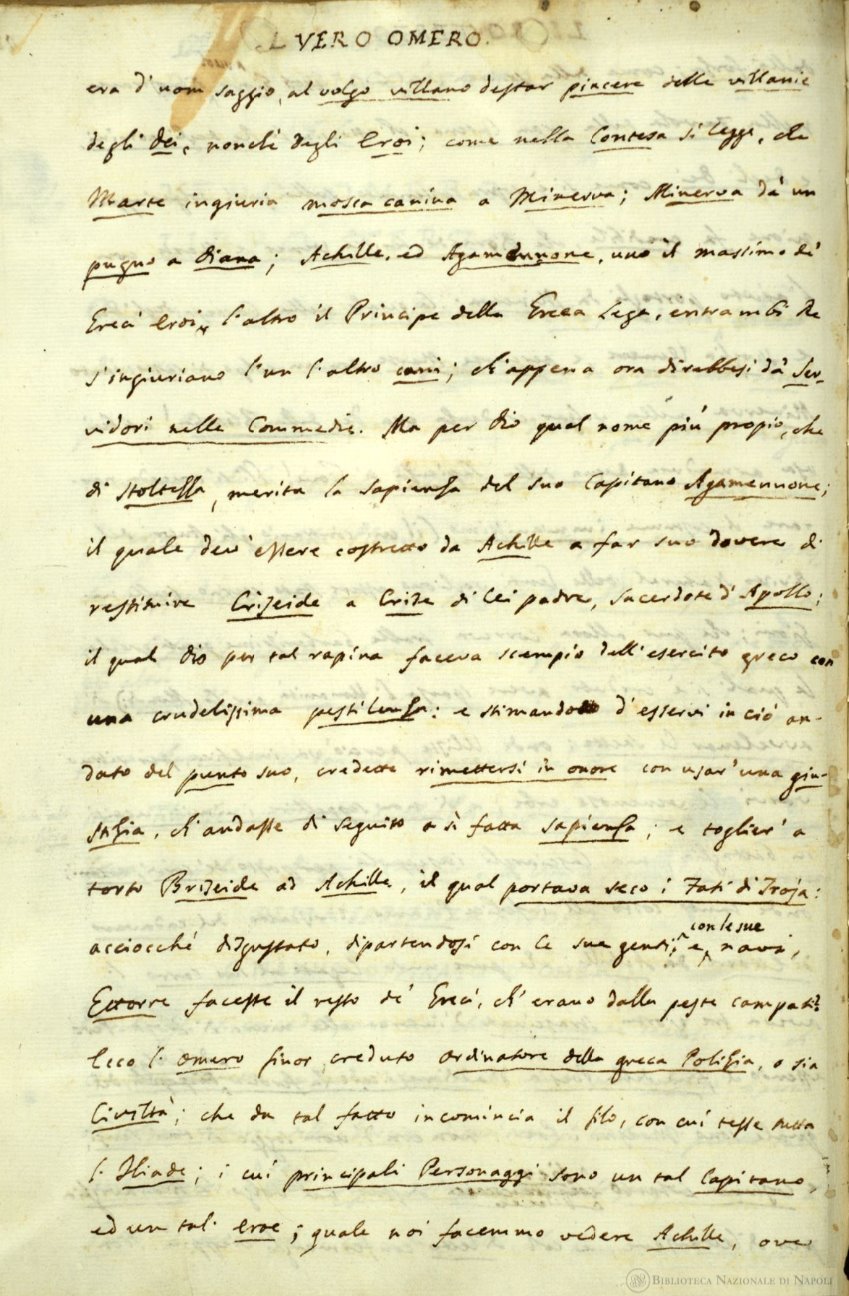 L VERO OMERO.
era d' uom saggio, al volgo villano destar piacere delle villanie
degli Dei, nonchè degli Eroi; come nella Contesa si legge, che
Marte ingiuria mosca canina a Minerva; Minerva dà un
pugno a Diana; Achille, ed Agamennone, uno il massimo de'
Greci Eroi, l'altro il Principe della Greca Lega, entrambi Re
s'ingiuriano l'un l'altro cani; ch'appena ora direbbesi da' Ser-
vidori nelle Commedie. Ma per Dio qual nome più propio, che
di stoltezza, merita la sapienza del suo Capitano Agamennone;
il quale dev' essere costretto da Achille a far suo dovere di
restituire Criseide a Crise di lei padre, sacerdote d' Apollo;
il qual Dio per tal rapina faceva scempio dell' esercito greco con
una crudelissima pestilenza: e stimando d' esservi in ciò an-
dato del punto suo, credette rimettersi in onore con usar' una giu-
stizia, ch' andasse di seguito a sì fatta sapienza; e toglier' a
torto Briseide ad Achille, il qual portava seco i Fati di Troja:
acciocchè disgustato, dipartendosi con le sue genti, e con le sue navi,
Ettorre facesse il resto de' Greci, ch' erano dalla peste campati:
Ecco l' Omero finor creduto ordinatore della greca Polizia, o sia
Civiltà; che da tal fatto incomincia il filo, con cui tesse tutta
l' Iliade; i cui principali Personaggi sono un tal Capitano,
ed un tal' Eroe; quale noi facemmo vedere Achille, ove
BIBLIOTECA NAZIONALE DI NAPOLI